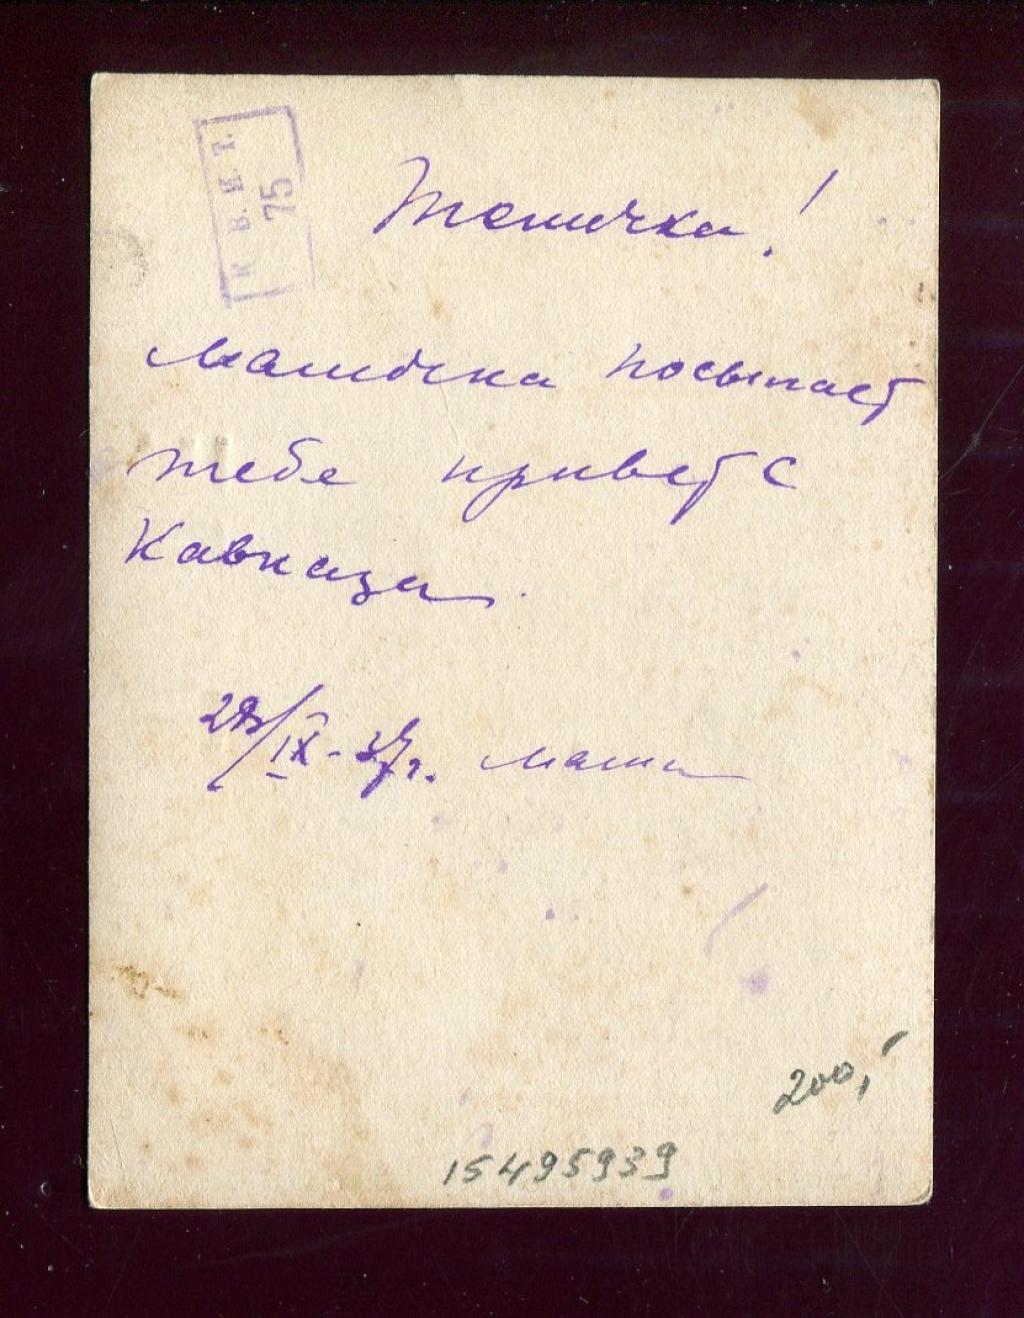 В. И. Т.
75
Томичка!
Мамочка посылает
тебе привет с
Кавказа.
IX - 37 г. Маша
200,-
15495939